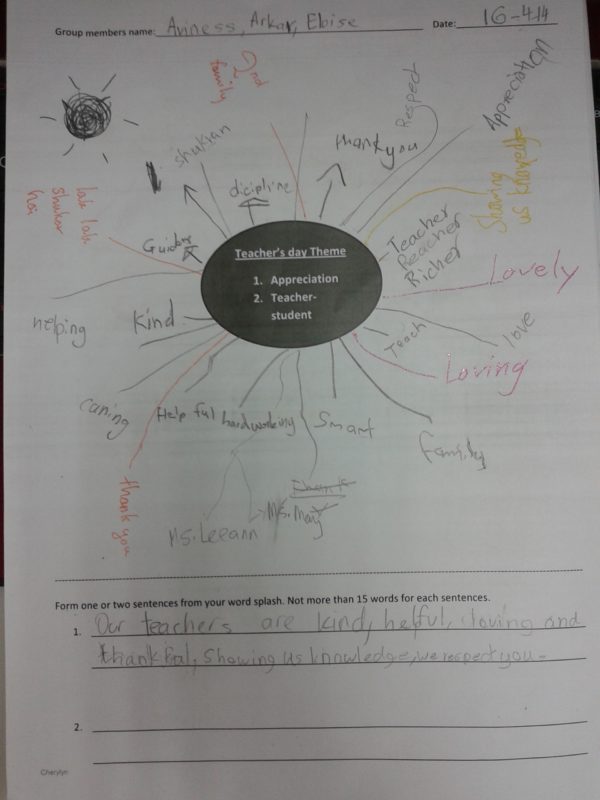 Group members name: Aviness, Arkar, Eloise
Date: 16-4-14
2nd
family
Respect
Appreciation
shukran
thank you
dicipline
Sharing
us knowledge
Guider
Teacher's day Theme
1. Appreciation
2. Teacher-
student
Teacher
Preacher
Richer
Lovely
helping
Kind
Teach
love
Loving
caring
Help ful
hardworking
Smart
family
thank you
Ms. Leeann
Ms. May
Form one or two sentences from your word splash. Not more than 15 words for each sentences.
1. Our teachers are kind, helful, loving and
thankful, Showing us knowledge, we respect you.
2.
Cherylyn